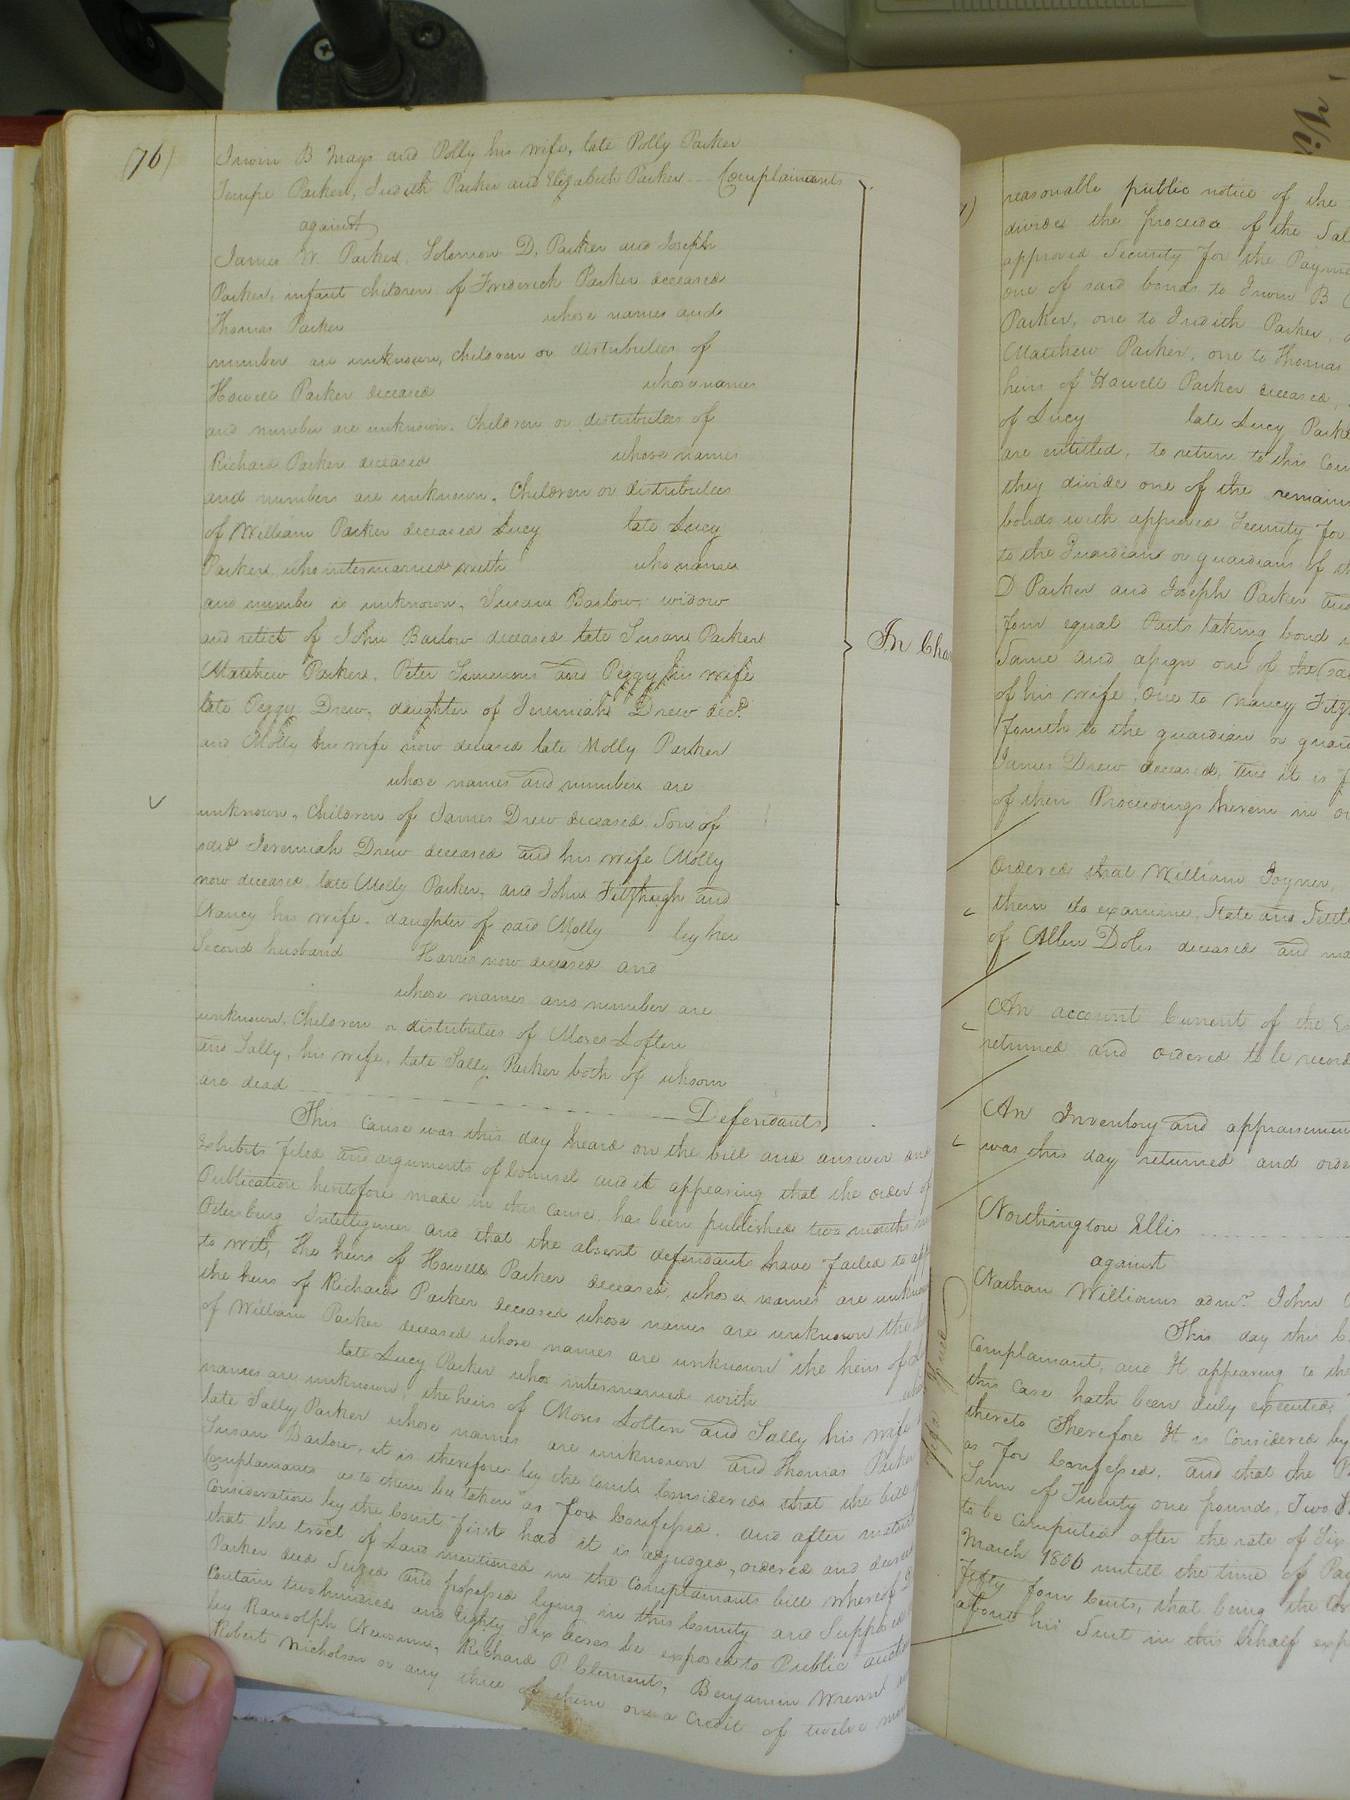 (76)
Irwin B Mays and Polly his wife, late Polly Parker
Tempe Parker, Judith Parker and Elizabeth Parker Complainants
against
James W. Parker, Solomon D. Parker and Joseph
Parker, infant children of Frederick Parker deceased
Thomas Parker whose names and
number are unknown, children or distributees of
Howell Parker deceased whose names
and number are unknown. Children or distributees of
Richard Parker deceased whose names
and numbers are unknown. Children or distributees
of William Parker deceased Lucy late Lucy
Parker who intermarried with who names
and number is unknown, Susan Barlow, widow
and relict of John Barlow deceased late Susan Parker
Matthew Parker, Peter Simmons and Peggy his wife
late Peggy Drew, daughter of Jeremiah Drew decd.
and Molly his wife now deceased late Molly Parker
whose names and numbers are
unknown, Children of James Drew deceased Son of
said Jeremiah Drew deceased and his wife Molly
now deceased, late Molly Parker, and John Fitzhugh and
Nancy his wife, daughter of said Molly by her
Second husband Harris now deceased and
whose names and number are
unknown, Children or distributees of Moses Loften
and Sally, his wife, late Sally Parker both of whom
are dead Defendants
In Cha
This cause was this day heard on the bill and answer and
exhibits filed and arguments of Counsel and it appearing that the order of
Publication heretofore made in this cause, has been published two months in
Petersburg Intelligencer and that the absent defendants have failed to app
to wit, the heirs of Howell Parker deceased, whose names are unknown
the heirs of Richard Parker deceased whose names are unknown the
of William Parker deceased whose names are unknown the heirs of
late Lucy Parker who intermarried with
names are unknown, the heirs of Moses Loften and Sally his wife
late Sally Parker whose names are unknown and Thomas Parker
Susan Barlow, it is therefore by the Court Considered that the bill
Complainants as to them be taken as for Confessed. and after mature
Consideration by the Court first had it is adjudged, ordered and decreed
that the tract of Land mentioned in the Complainants bill whereof
Parker died Seized and possessed lying in this County and Supposed
Contain two hundred and Eighty Six acres be exposed to Public auction
by Randolph Newsum, Richard P Clements, Benjamin Wrenn
Robert Nicholson or any three of them on a Credit of twelve
reasonable public notice of the
divide the proceeds of the Sal
approved Security for the Payme
one of said bonds to Irwin B
Parker, one to Judith Parker,
Matthew Parker, one to Thomas
heirs of Howell Parker deceased,
of Lucy late Lucy Parke
are entitled, to return to this Cou
they divide one of the remain
bonds with approved Security for
to the Guardian or guardians of
D Parker and Joseph Parker and
four equal Parts taking bond
Same and assign one of the sa
of his wife, one to Nancy Fitz
fourth to the guardian or guar
James Drew deceased, and it is
of their Proceedings herein in
Ordered that William Joyner,
them do examine, State and Settle
of Allen Doles deceased and
An account Current of the
returned and ordered to be record
An Inventory and appraisement
was this day returned and orde
Northington Ellis
against
Nathan Williams admr. John
This day this
Complainant, and It appearing to the
this case hath been duly executed
thereto Therefore It is Considered by
as for Confessed, and that the
Sum of Twenty one pounds, Two
to be Computed after the rate of Six
March 1806 untill the time of Pay
fifty four Cents, that being the
about his Suit in this behalf exp